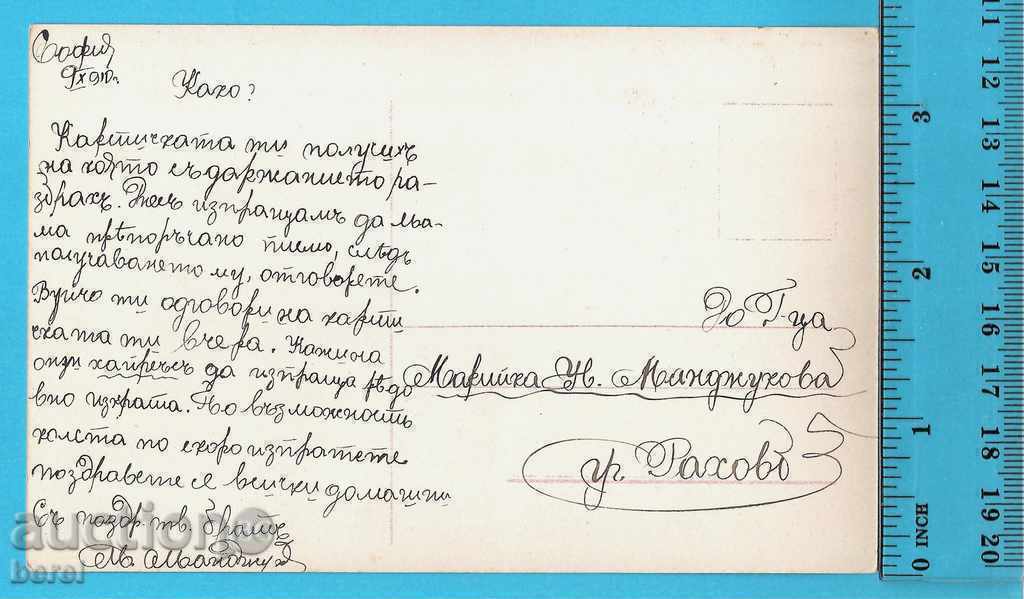 София
9 X 910 г.
Како?
Картичката ти получихъ
на която съдаржанието ра-
збрахъ. Днесъ изпращамъ да
ма прѣпоръчано писмо, слѣдъ
получаването му, отговорете.
Вуйчо ти одговори на карти
чката ти вчера. Кажи на
онзи хайресъ да изпраща рѣдо
вно изкрата. По възможность
холста по скоро изпратете
поздравете се всички домашни
Съ поздр. тв. братъ
М. Манджук
До Г-ца
Марийка Ив. Манджукова
гр. Рахово
auction
berel
11 12 13 14 15 16 17 18 19 20
3
2
1
0 INCH